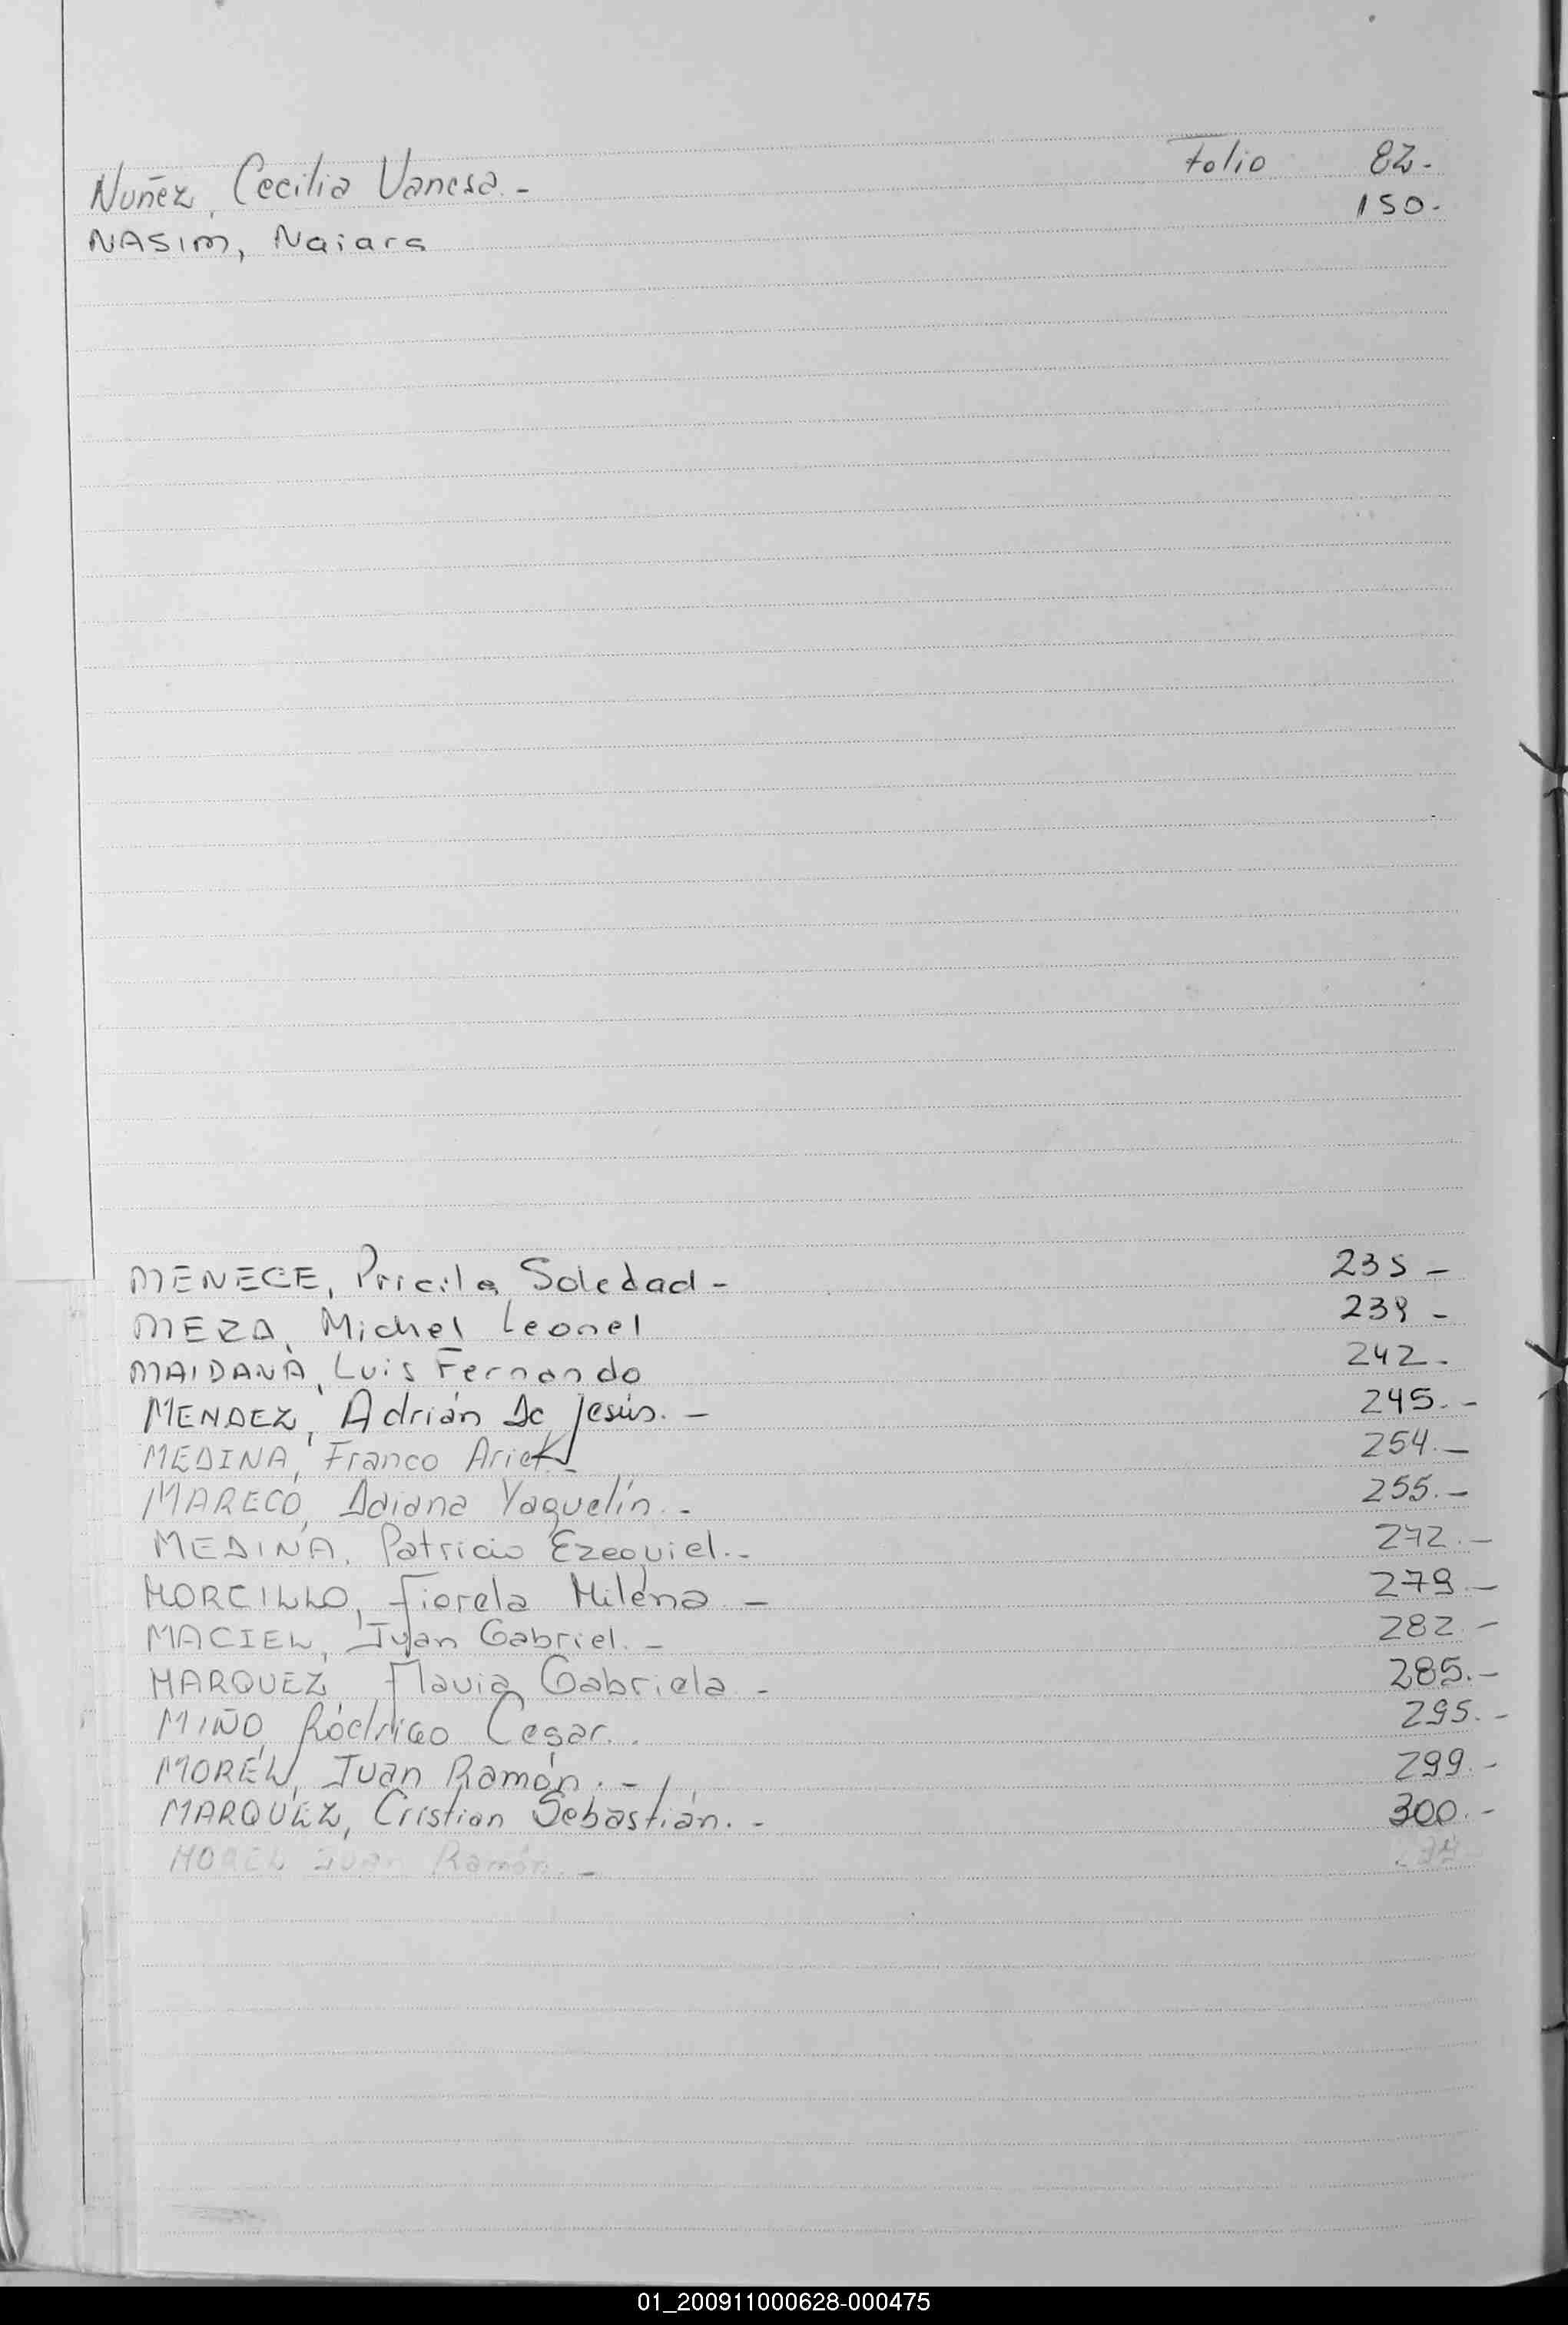 Nuñez, Cecilia Vanesa.- Folio 82.-
NASIM, Naiara 150.-
MENECE, Pricila Soledad - 235 -
MEZA, Michel Leonel 239 -
MAIDANA, Luis Fernando 242 -
MENDEZ, Adrián De Jesús. - 245. -
MEDINA, Franco Ariel - 254. -
MARECO, Daiana Yaquelín. - 255. -
MEDINA, Patricio Ezequiel. - 272. -
MORCILLO, Fiorela Milena - 279 -
MACIEL, Juan Gabriel. - 282. -
MARQUEZ, Flavia Gabriela - 285. -
MIÑO, Rodrigo Cesar. . 295. -
MOREL, Juan Ramón. - 299. -
MARQUEZ, Cristian Sebastián. - 300. -
MOREL Juan Ramón. -
01_200911000628-000475